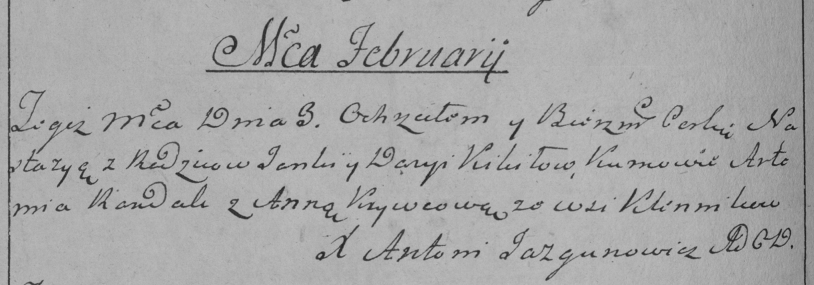 Mca Februarij
Tegiż Mca Dnia 3. Ochrzciłem y Bierzm Corkę Na
stazyę z Rodzicow Jankı y Daryi Kikiłow, Kumowie Arte
mia Kandak z Anną Krywcową ze wsi Klennikow
X Antoni Jazgunowicz